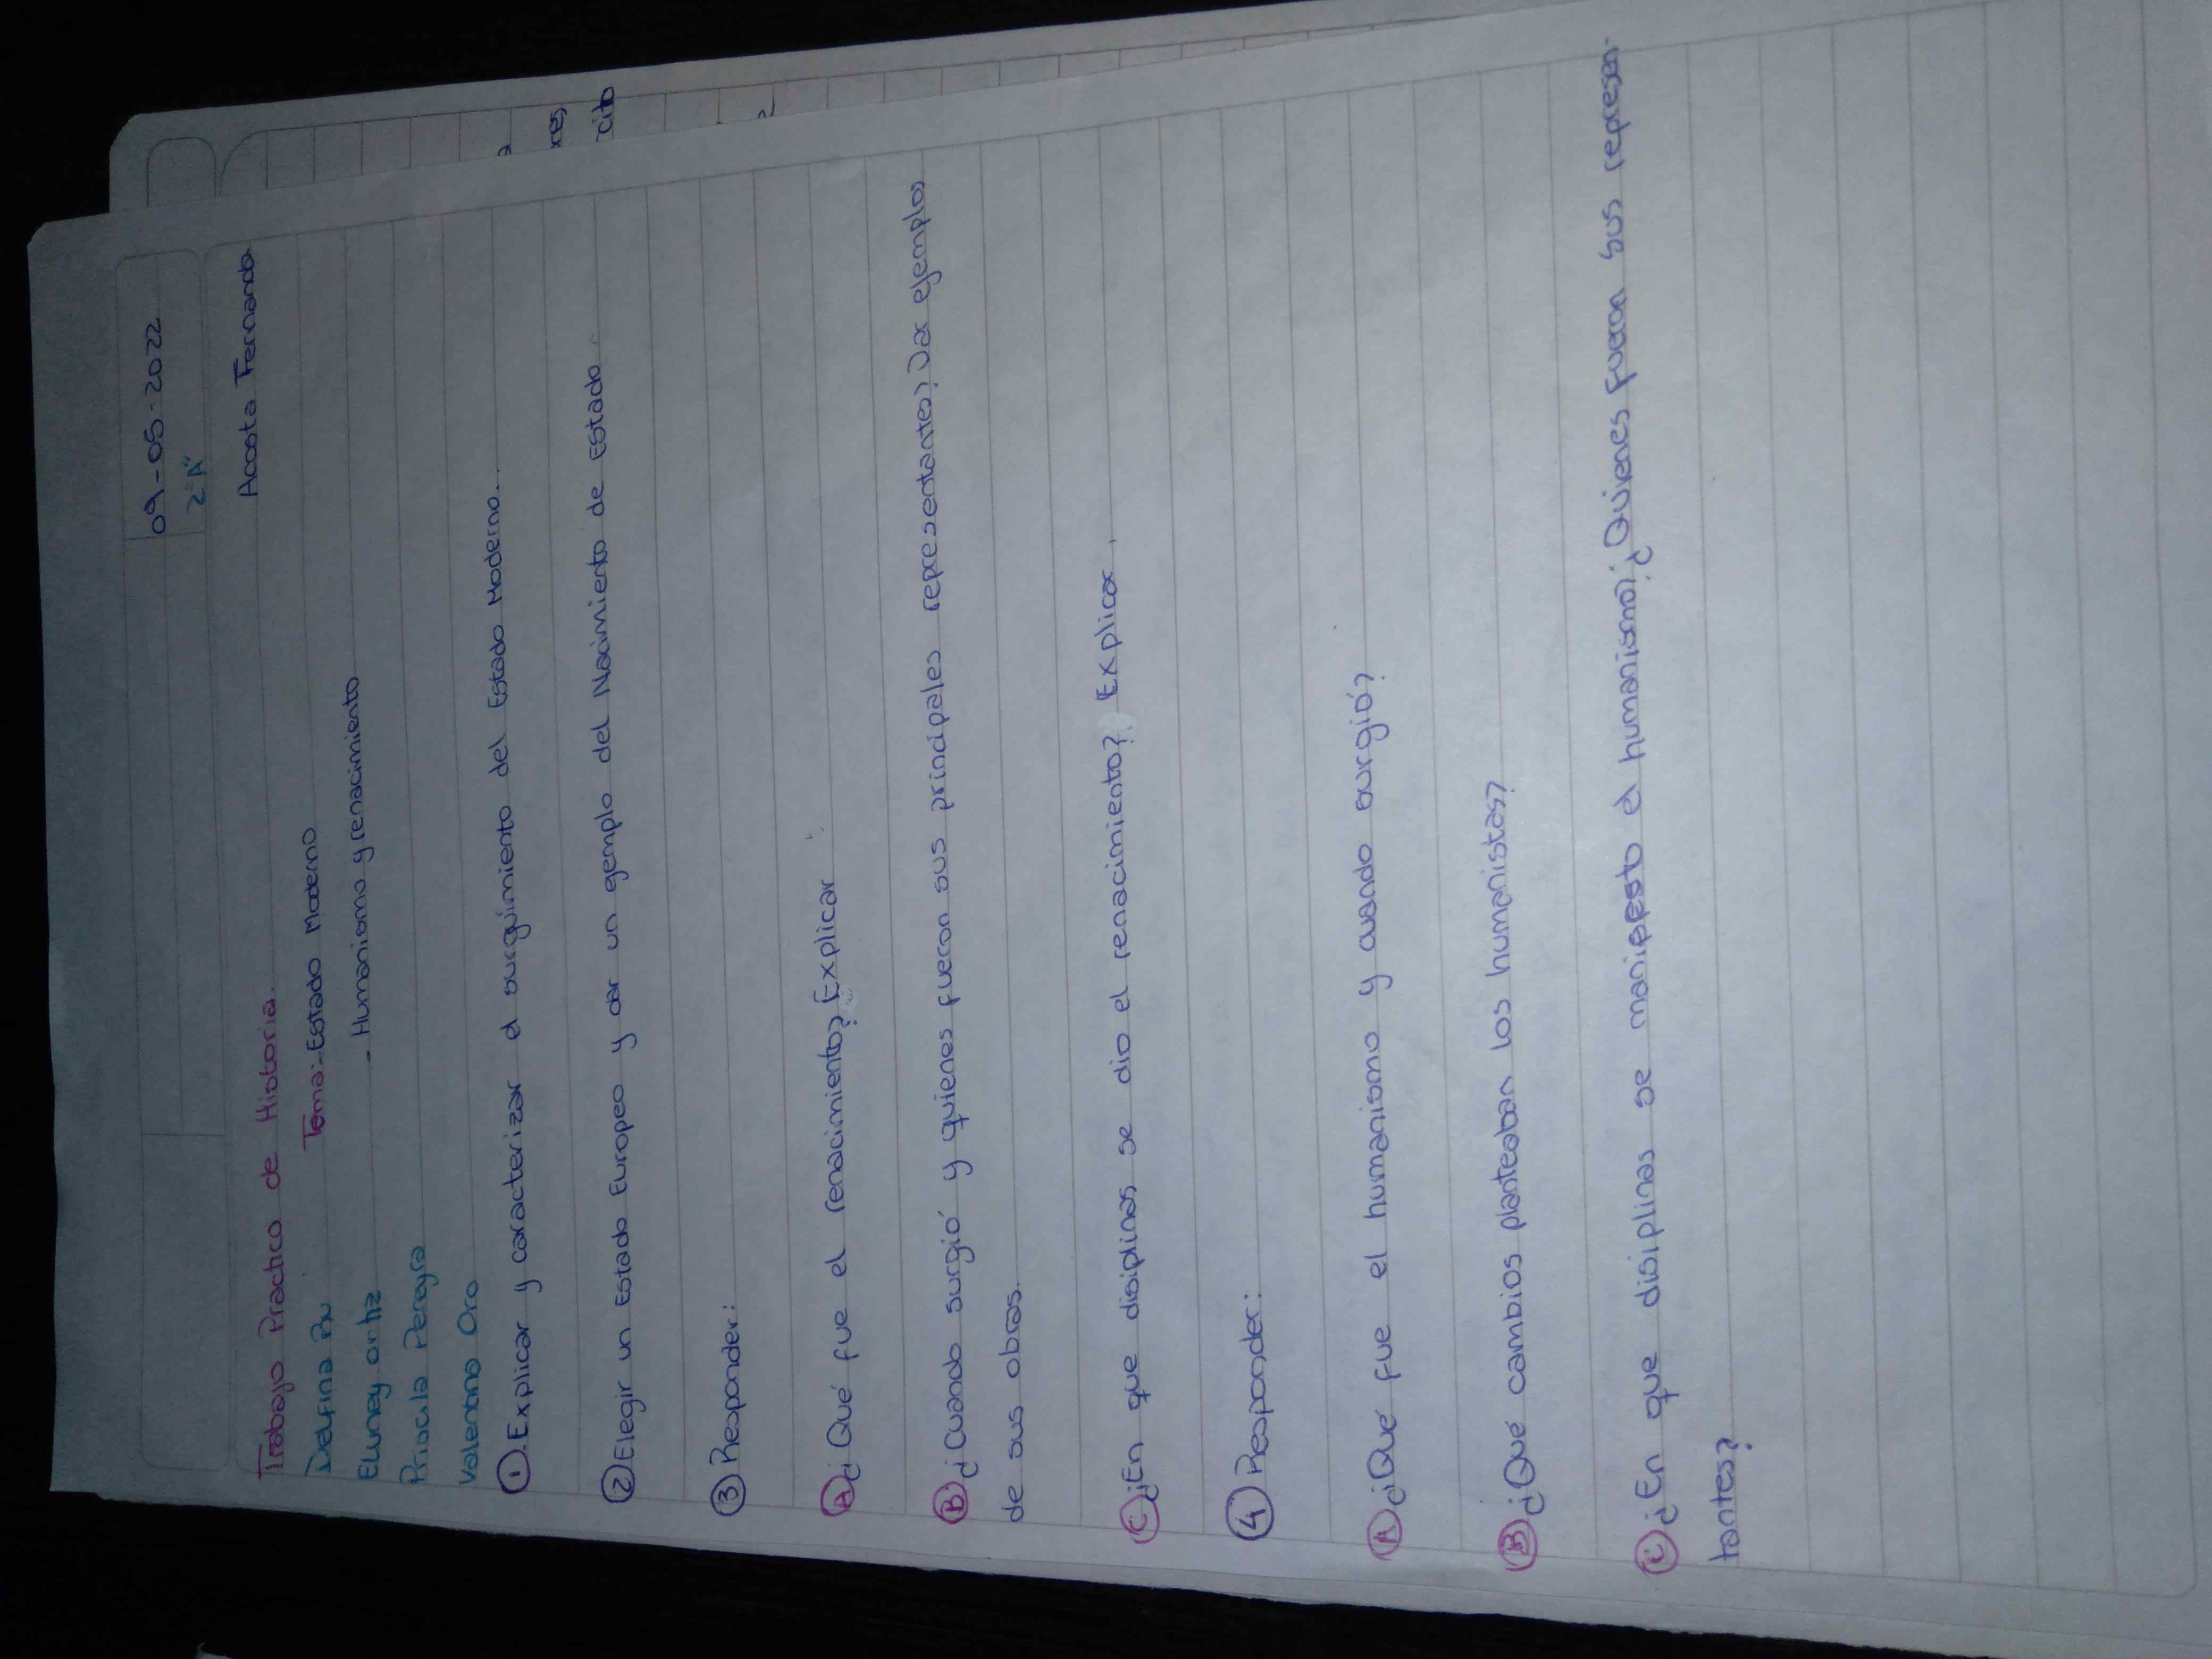 09-05-2022
2"A"
Acosta Fernanda
Trabajo Practico de Historia.
Tema:-Estado Moderno
- Humanismo y renacimiento
Delfina
Eluney Ortiz
Priscila Pereyra
Valentina Oro
1. Explicar y caracterizar el surguimiento del Estado Moderno..
2 Elegir un Estado Europeo y dar un ejemplo del Nacimiento de Estado.
3 Responder:
A ¿Qué fue el renacimiento? Explicar
B ¿Cuando surgió y quienes fueron sus principales representantes? Dar ejemplos
de sus obras.
C ¿En que disiplinas se dio el renacimiento? Explicar.
4 Responder:
A ¿Qué fue el humanismo y cuando surgió?
B ¿Qué cambios planteaban los humanistas?
C ¿En que disiplinas se manifesto el humanismo? ¿Quienes fueron sus represen-
tantes?
res
cito